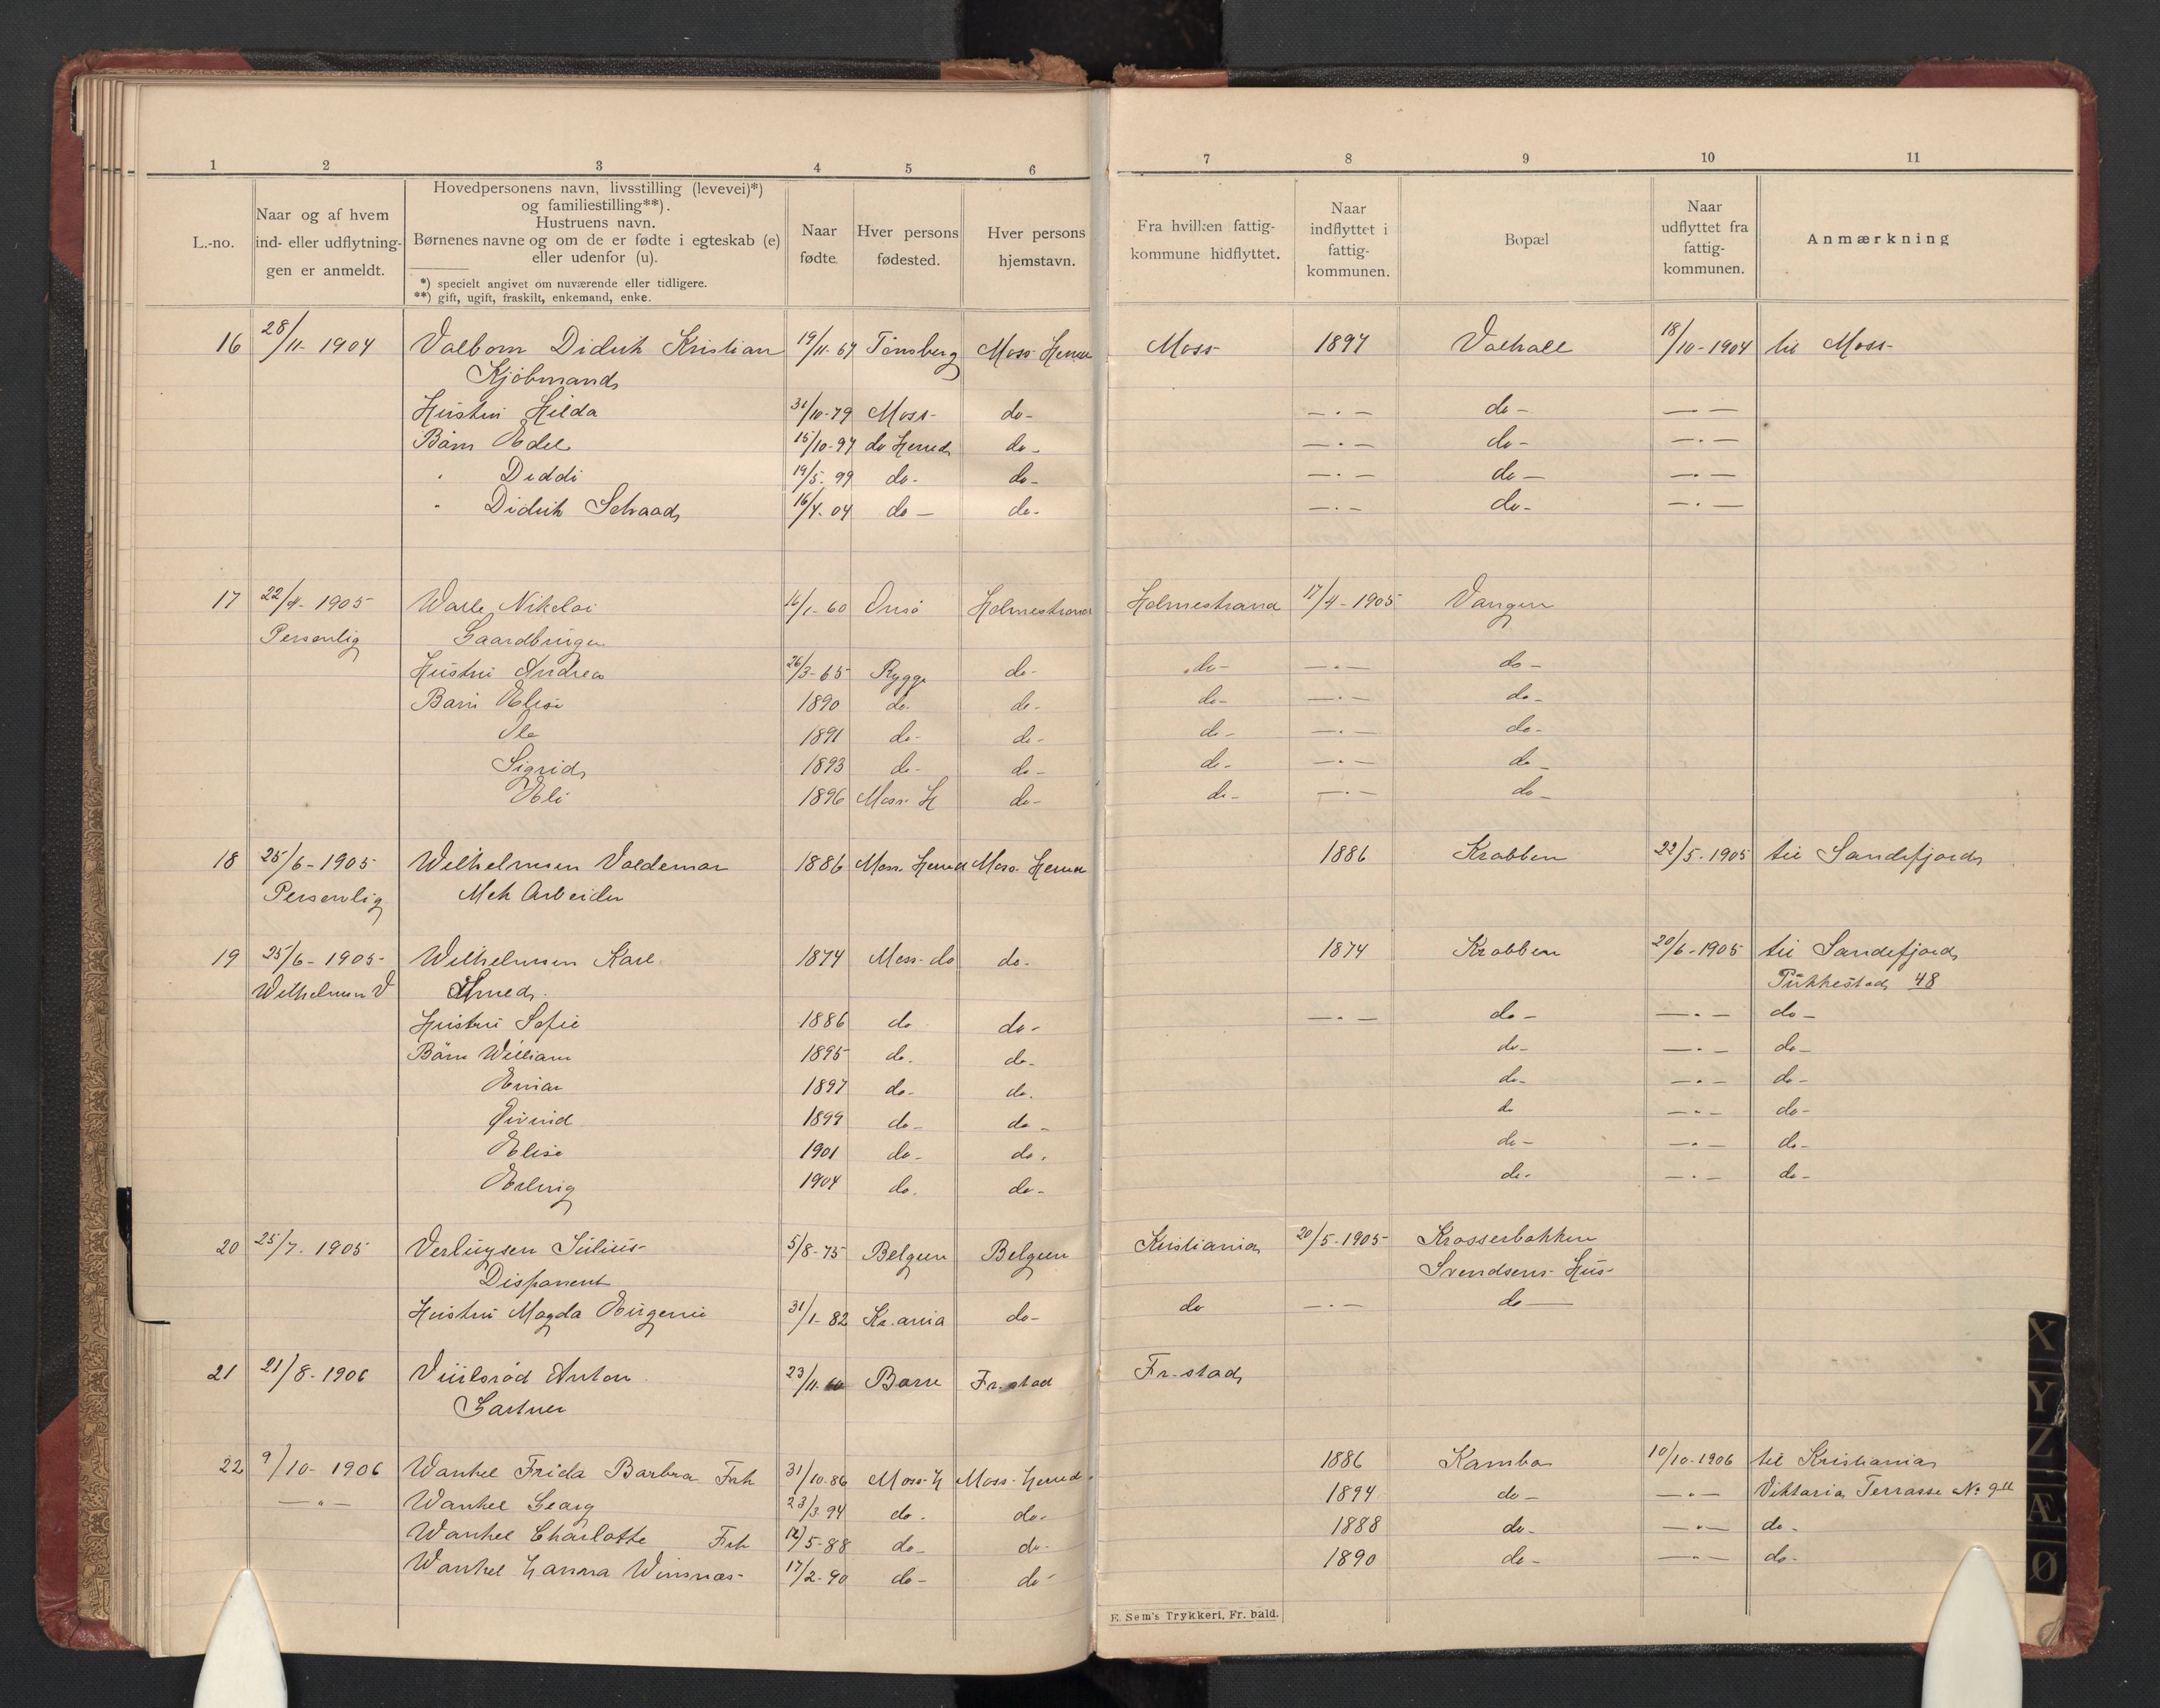 1 2 3 4 5 6 7 8 9 10 11
L.-no.
Naar og af hvem
ind- eller udflytnin-
gen er anmeldt.
Hovedpersonens navn, livsstilling (levevei)*)
og familiestilling**).
Hustruens navn.
Børnenes navne og om de er fødte i egteskab (e)
eller udenfor (u).
*) specielt angivet om nuværende eller tidligere.
**) gift, ugift, fraskilt, enkemand, enke.
Naar
fødte.
Hver persons
fødested.
Hver persons
hjemstavn.
Fra hvilken fattig-
kommune hidflyttet.
Naar
indflyttet i
fattig-
kommunen.
Bopæl
Naar
udflyttet fra
fattig-
kommunen.
Anmærkning
16 28/11-1904 Valbom Didrik Kristian 19/11-67 Tønsberg Moss Herred Moss 1897 Valhall 18/10-1904 til Moss
Kjøbmand
Hustru Hilda 31/10-79 Moss do do do
Børn Edel 15/10-97 do Herred do do
" Diddi 19/5-99 do do do
" Didrik Schaad 16/4-04 do do do
17 22/4-1905 Walle Nikolai 16/1-60 Onsø Holmestrand Holmestrand 17/4-1905 Vangen
Personlig Gaardbruger
Hustru Andrea 26/3-65 Rygge do do do
Barn Elise 1890 do do do do
Ole 1891 do do do do
Sigrid 1893 do do do do
Eli 1896 Moss H do do do
18 25/6-1905 Wilhelmsen Valdemar 1886 Moss Herred Moss Herred 1886 Krabben 22/5-1905 til Sandefjord
Personlig Mek Arbeider
19 25/6-1905 Wilhelmsen Karl 1874 Moss do do 1874 Krabben 20/6-1905 til Sandefjord
Wilhelmsen V Smed Pukkestad 48
Hustru Sofie 1886 do do do do
Børn William 1895 do do do do
Einar 1897 do do do do
Øivind 1899 do do do do
Elise 1901 do do do do
Erling 1904 do do do do
20 25/7-1905 Verluysen Julius 5/8-75 Belgien Belgien Kristiania 20/5-1905 Krosserbakken
Disponent Svendsens Hus
Hustru Magda Eugenie 31/1-82 Kr.ania do do do
21 21/8-1906 Anton 23/11-60 Borre Fr.stad Fr.stad
Gartner
22 9/10-1906 Wankel Frida Barbra Frk 31/10-86 Moss H Moss Herred 1886 Kambo 10/10-1906 til Kristiania
— " — Wankel Georg 23/3-94 do do 1894 do Viktoria Terrasse No 9 II
Wankel Charlotte Frk 12/5-88 do do 1888 do do
Wankel Hanna Winsnæs 17/2-90 do do 1890 do do
E. Sem's Trykkeri, Fr. hald.
X
Y
Z
Æ
Ø